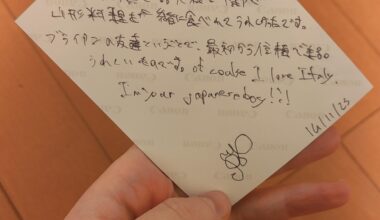 山形料理を一緒に食べれてうれしかったです。
ブライアンの友達ということで、最初から信頼できるの
うれしいものです。of course I love Italy.
I'm your japanese boy!!!
14/11/25
Canon
Canon
Canon